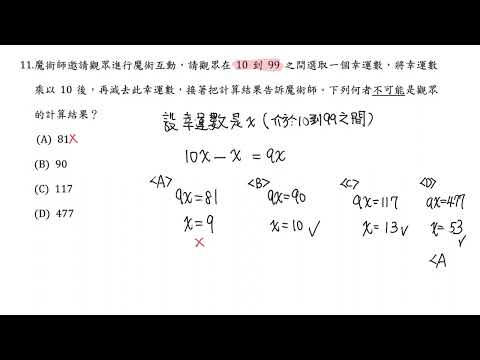 11.魔術師邀請觀眾進行魔術互動，請觀眾在 10 到 99 之間選取一個幸運數，將幸運數
乘以 10 後，再減去此幸運數，接著把計算結果告訴魔術師。下列何者不可能是觀眾
的計算結果？
設幸運數是x（介於10到99之間）
(A) 81 X
(B) 90
(C) 117
(D) 477
10x－x = 9x
<A>
9x=81
x=9
×
<B>
9x=90
x=10 ✓
<C>
9x=117
x=13 ✓
<D>
9x=477
x=53
✓
<A